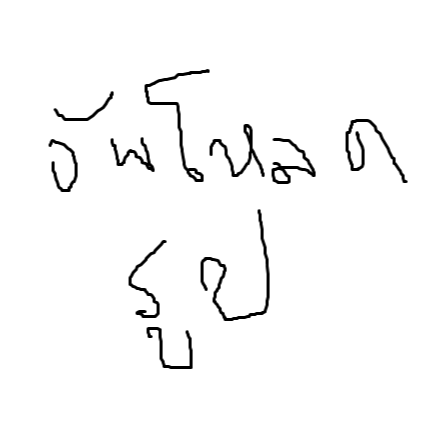 อัพโหลด
รูป